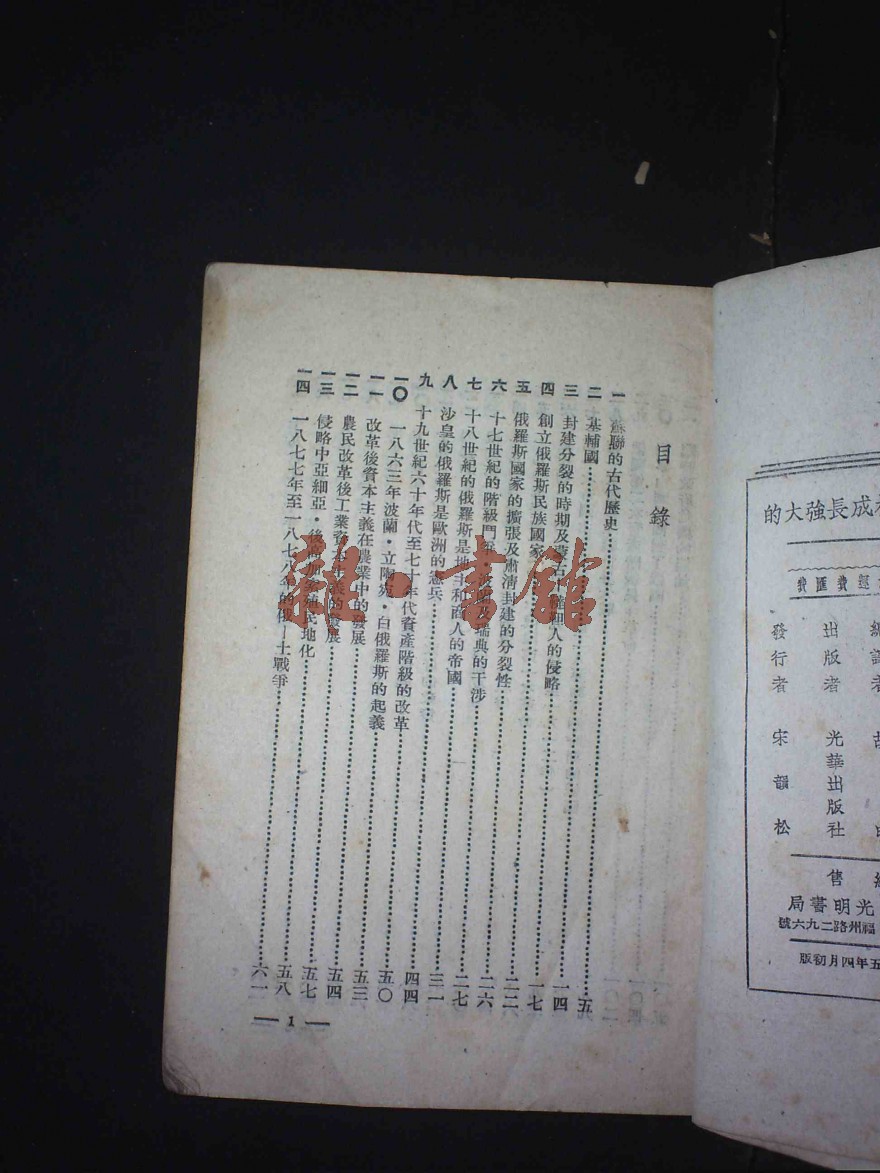 成長強大的
運費匯費
編譯者
出版者 光華出版社
發行者 宋韻松
售
光明書局
福州路二九六號
五年四月初版
目錄
一 蘇聯的古代歷史……五
二 基輔國……一四
三 封建分裂的時期及蒙古韃靼人的侵略……一七
四 創立俄羅斯民族國家……二二
五 俄羅斯國家的擴張及肅清封建的分裂性……二六
六 十七世紀的階級鬥爭・波蘭及瑞典的干涉……二七
七 十八世紀的俄羅斯是地主和商人的帝國……三一
八 沙皇的俄羅斯是歐洲的憲兵……四四
九 十九世紀六十年代至七十年代資產階級的改革……五〇
一〇 一八六三年波蘭・立陶宛・白俄羅斯的起義……五三
一一 改革後資本主義在農業中的發展……五四
一二 農民改革後工業資本主義的發展……五七
一三 侵略中亞細亞・後高加索殖民地化……五八
一四 一八七七年至一八七八年的俄—土戰爭……六一
— 1 —
雜・書館